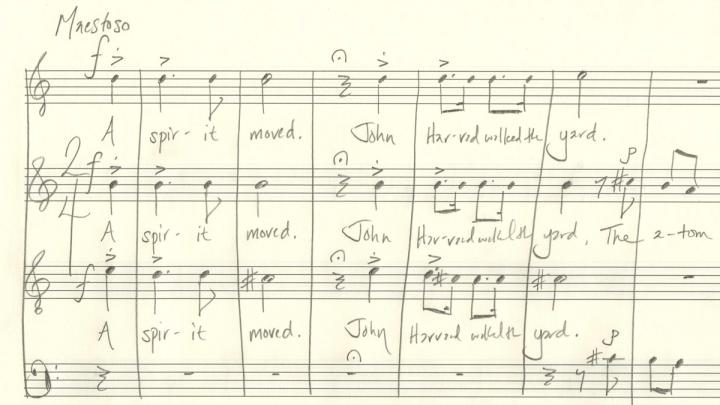 Maestoso
f
A spir-it moved. John Har-vard walked the yard.
2
4
f
A spir-it moved. John Har-vard walked the yard, The a-tom
p
f
A spir-it moved. John Harvard walked the yard.
8
p